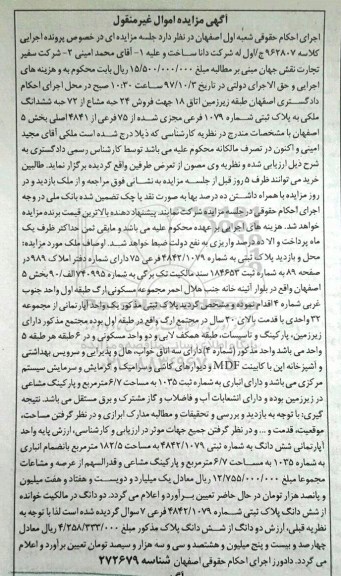 آگهی مزایده اموال غیرمنقول
اجرای احکام حقوقی شعبه اول اصفهان در نظر دارد جلسه مزایده ای در خصوص پرونده اجرایی
کلاسه ۹۶۲۸۰۷ ج/اول له شرکت دانا ساخت و علیه ۱- آقای محمد امینی ۲- شرکت سفیر
تجارت نقش جهان مبنی بر مطالبه مبلغ ۱۵/۵۰۰/۰۰۰/۰۰۰ ریال بابت محکوم به و هزینه های
اجرایی و حق الاجرای دولتی در تاریخ ۹۷/۱۰/۳ ساعت ۱۰:۳۰ صبح در محل اجرای احکام
دادگستری اصفهان طبقه زیرزمین اتاق ۱۸ جهت فروش ۲۴ حبه مشاع از ۷۲ حبه ششدانگ
ملکی به پلاک ثبتی شماره ۱۰۷۹ فرعی مجزی شده از ۷۵ فرعی از ۴۸۴۱ اصلی بخش ۵
اصفهان با مشخصات مندرج در نظریه کارشناسی که ذیلا درج شده است ملکی آقای مجید
امینی و اکنون در تصرف مالکانه محکوم علیه می باشد توسط کارشناس رسمی دادگستری به
شرح ذیل ارزیابی شده و نظریه وی مصون از تعرض طرفین واقع گردیده برگزار نماید. طالبین
خرید می توانند ظرف ۵ روز قبل از جلسه مزایده به نشانی فوق مراجعه و از ملک بازدید و در
روز مزایده با همراه داشتن ده درصد بها به صورت نقد یا چک تضمین شده بانک ملی در وجه
اجرای احکام حقوقی در جلسه مزایده شرکت نمایند. پیشنهاد دهنده بالاترین قیمت برنده مزایده
خواهد شد. هزینه های اجرایی بر عهده محکوم علیه می باشد و مابقی ثمن حداکثر ظرف یک
ماه پرداخت و الا ده درصد واریزی به نفع دولت ضبط خواهد شد. اوصاف ملک مورد مزایده:
محل و بازدید پلاک ثبتی به شماره ۴۸۴۲/۱۰۷۹ فرعی ۷۵ دارای شماره دفتر املاک ۹۸۹ در
صفحه ۸۹ به شماره ثبت ۱۸۴۶۵۳ سند مالکیت تک برگی به شماره ۷۴۰۹۹۵ الف/۹۰ بخش ۵
اصفهان واقع در بلوار آئینه خانه جنب هلال احمر مجموعه مسکونی ارک طبقه اول واحد جنوب
غربی شماره ۴ اقدام نموده و مشخص گردید پلاک ثبتی مذکور یک واحد آپارتمانی از مجموعه
۳۲ واحدی با قدمت بالای ۳۰ سال در مجتمع ارک واقع در طبقه اول بوده مجتمع مذکور دارای
زیرزمین، پارکینگ و تاسیسات، طبقه همکف لابی و دو واحد مسکونی و در ۶ طبقه هر طبقه ۵
واحد می باشد واحد مذکور (شماره ۴) دارای سه اتاق خواب، هال و پذیرایی و سرویس بهداشتی
و آشپزخانه اپن با کابینت MDF و دیوارهای کاشی و سرامیک و گرمایش و سرمایش سیستم
مرکزی می باشد و دارای انباری به شماره ثبت ۱۰۳۵ به مساحت ۶/۷ مترمربع و پارکینگ مشاعی
در زیرزمین بوده و دارای انشعابات آب و فاضلاب و گاز مشترک و برق مستقل می باشد. نتیجه
گیری: با توجه به بازدید و بررسی و تحقیقات و مطالعه مدارک ابرازی و در نظر گرفتن مساحت،
موقعیت، قدمت و ... و در نظر گرفتن جمیع جهات موثر در ارزیابی و کارشناسی، ارزش پایه واحد
آپارتمانی شش دانگ به شماره ثبتی ۴۸۴۲/۱۰۷۹ به مساحت ۱۸۲/۵ مترمربع بانضمام انباری
به شماره ۱۰۳۵ به مساحت ۶/۷ مترمربع و پارکینگ مشاعی و قدرالسهم از عرصه و مشاعات
مجموعا مبلغ ۱۲/۷۵۵/۰۰۰/۰۰۰ ریال معادل یک میلیارد و دویست و هفتاد و هفت میلیون
و پانصد هزار تومان در حال حاضر تعیین برآورد و اعلام می گردد. دو دانگ در مالکیت خوانده
از شش دانگ پلاک ثبتی شماره ۴۸۴۲/۱۰۷۹ فرعی ۷ سوال گردیده شده است لذا با توجه به
نظریه قبلی، ارزش دو دانگ از شش دانگ پلاک مذکور مبلغ ۴/۲۵۸/۳۳۳/۰۰۰ ریال معادل
چهارصد و بیست و پنج میلیون و هشتصد و سی و سه هزار و سیصد تومان تعیین برآورد و اعلام
می گردد. دادورز اجرای احکام حقوقی اصفهان شناسه ۲۷۲۶۷۹